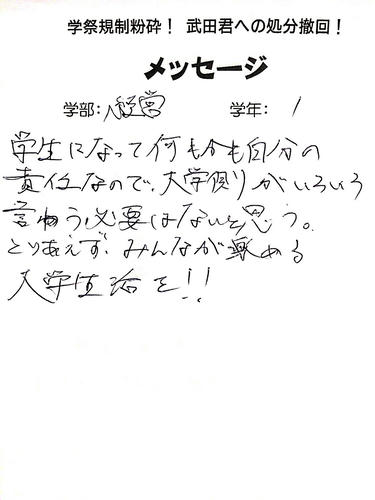 学祭規制粉砕! 武田君への処分撤回!
メッセージ
学部: 経営 学年: 1
学生になって何もかも自分の
責任なので、大学側がいろいろ
言う必要はないと思う。
とりあえず、みんなが楽める
大学生活を!!